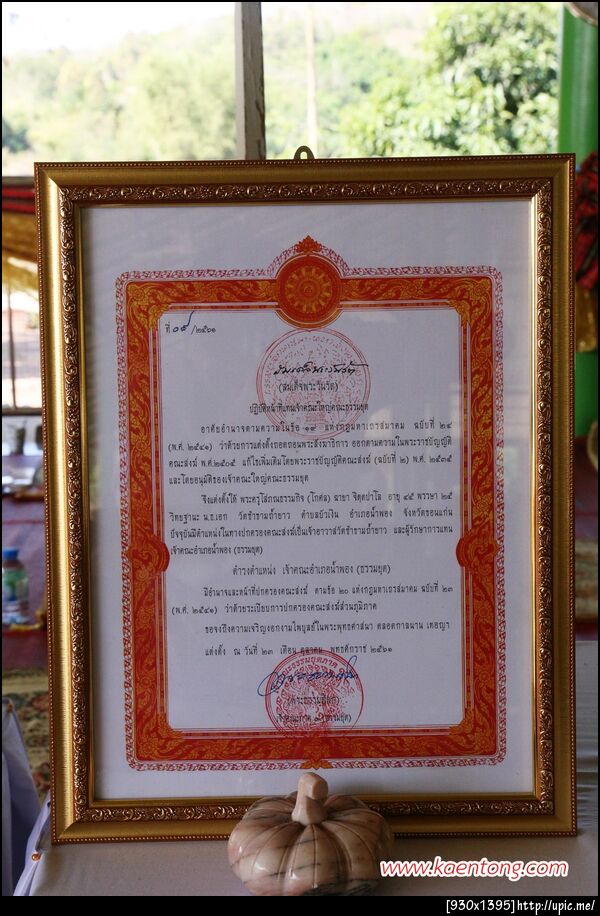 ที่ ๐๙ /๒๕๖๑
(สมเด็จพระวันรัต)
ปฏิบัติหน้าที่แทนเจ้าคณะใหญ่คณะธรรมยุต
อาศัยอำนาจตามความในข้อ ๑๙ แห่งกฎมหาเถรสมาคม ฉบับที่ ๒๔
(พ.ศ. ๒๕๔๑) ว่าด้วยการแต่งตั้งถอดถอนพระสังฆาธิการ ออกตามความในพระราชบัญญัติ
คณะสงฆ์ พ.ศ.๒๕๐๕ แก้ไขเพิ่มเติมโดยพระราชบัญญัติคณะสงฆ์ (ฉบับที่ ๒) พ.ศ. ๒๕๓๕
และโดยอนุมัติของเจ้าคณะใหญ่คณะธรรมยุต
จึงแต่งตั้งให้ พระครูโสภณธรรมกิจ (โกศล) ฉายา อายุ ๔๕ พรรษา ๒๕
วิทยฐานะ น.ธ.เอก วัดชำธามถ้ำยาว ตำบลบัวเงิน อำเภอน้ำพอง จังหวัดขอนแก่น
ปัจจุบันมีตำแหน่งในทางปกครองคณะสงฆ์เป็นเจ้าอาวาสวัดชำธามถ้ำยาว และผู้รักษาการแทน
เจ้าคณะอำเภอน้ำพอง (ธรรมยุต)
ดำรงตำแหน่ง เจ้าคณะอำเภอน้ำพอง (ธรรมยุต)
มีอำนาจและหน้าที่ปกครองคณะสงฆ์ ตามข้อ ๒๐ แห่งกฎมหาเถรสมาคม ฉบับที่ ๒๓
(พ.ศ. ๒๕๔๑) ว่าด้วยระเบียบการปกครองคณะสงฆ์ส่วนภูมิภาค
ขอจงถึงความเจริญงอกงามไพบูลย์ในพระพุทธศาสนา ตลอดกาลนาน เทอญฯ
แต่งตั้ง ณ วันที่ ๒๓ เดือน ตุลาคม พุทธศักราช ๒๕๖๑
เจ้าคณะภาค (ธรรมยุต)
www.kaentong.com
[930x1395]http://upic.me/